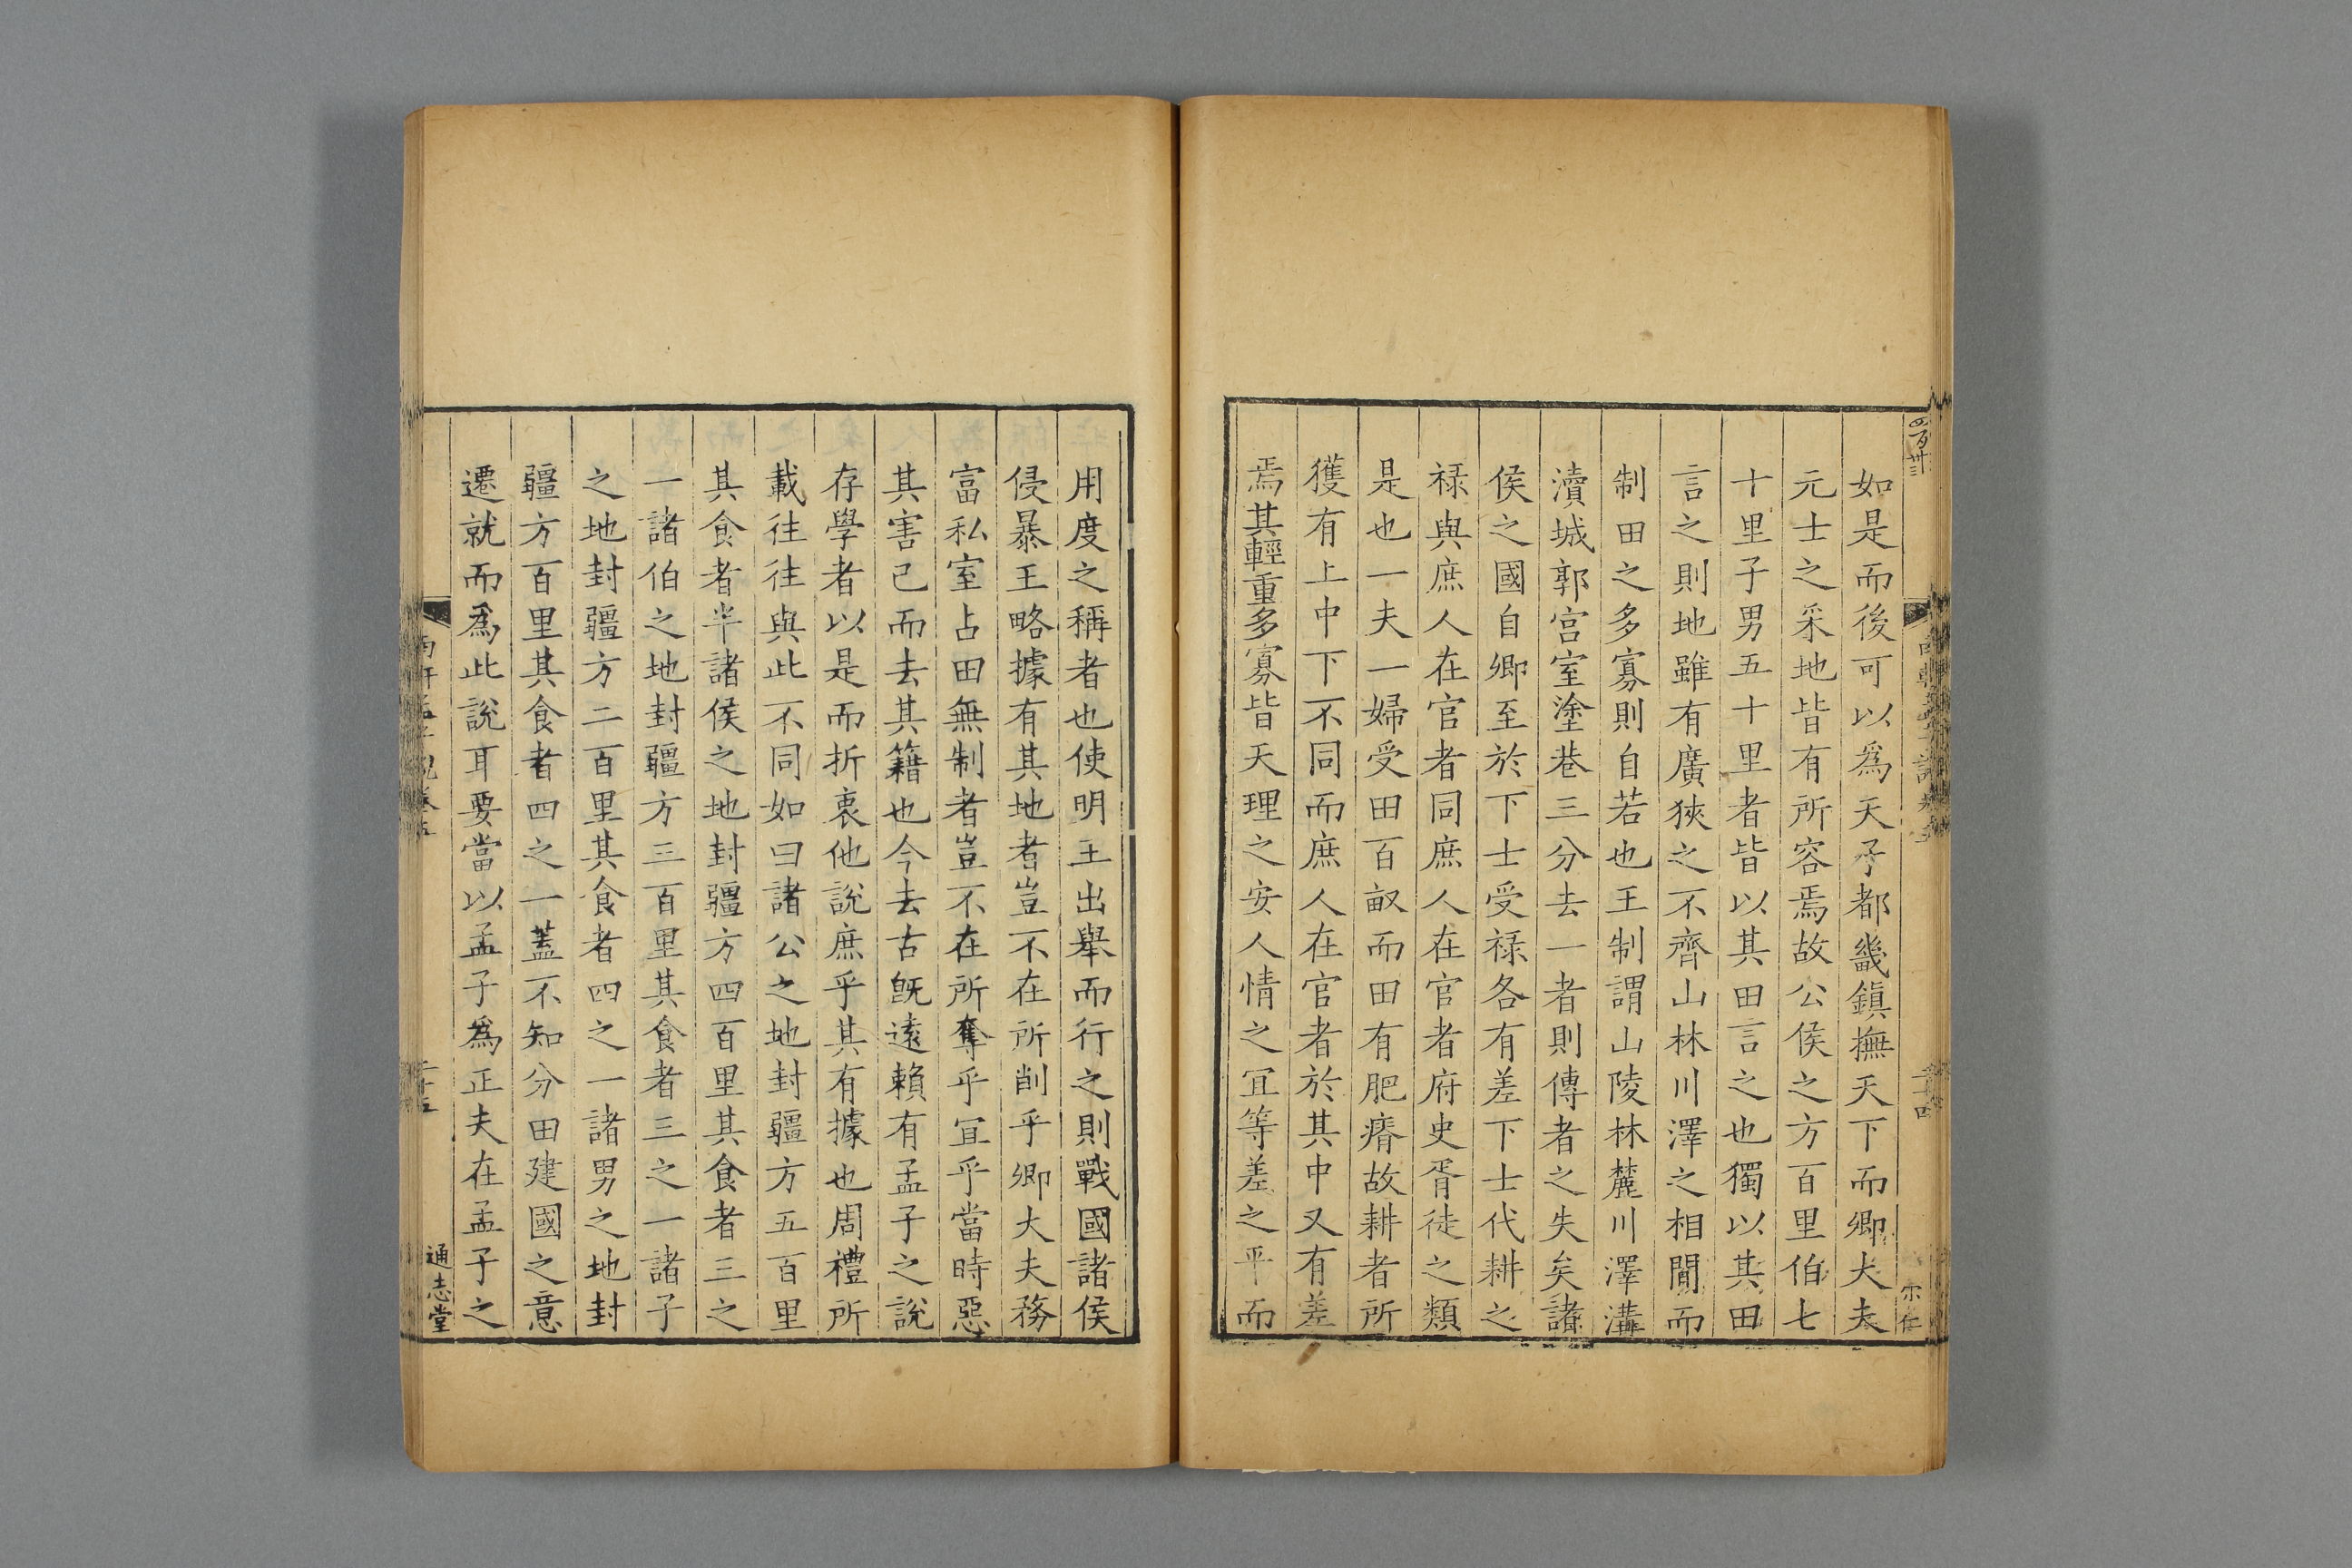 四百卅三
如是而後可以爲天子都畿鎮撫天下而卿大夫
元士之采地皆有所容焉故公侯之方百里伯七
十里子男五十里者皆以其田言之也獨以其田
言之則地雖有廣狹之不齊山林川澤之相間而
制田之多寡則自若也王制謂山陵林麓川澤溝
瀆城郭宫室塗巷三分去一者則傳者之失矣諸
侯之國自卿至於下士受禄各有差下士代耕之
禄與庶人在官者同庶人在官者府史胥徒之類
是也一夫一婦受田百畝而田有肥瘠故耕者所
獲有上中下不同而庶人在官者於其中又有差
焉其輕重多寡皆天理之安人情之宜等差之平而
用度之稱者也使明王出舉而行之則戰國諸侯
侵暴王略據有其地者豈不在所削乎卿大夫務
富私室占田無制者豈不在所奪乎宜乎當時惡
其害己而去其籍也今去古旣遠賴有孟子之說
存學者以是而折衷他說庶乎其有據也周禮所
載往往與此不同如曰諸公之地封疆方五百里
其食者半諸侯之地封疆方四百里其食者三之
一諸伯之地封疆方三百里其食者三之一諸子
之地封疆方二百里其食者四之一諸男之地封
疆方百里其食者四之一蓋不知分田建國之意
遷就而爲此說耳要當以孟子爲正夫在孟子之
通志堂